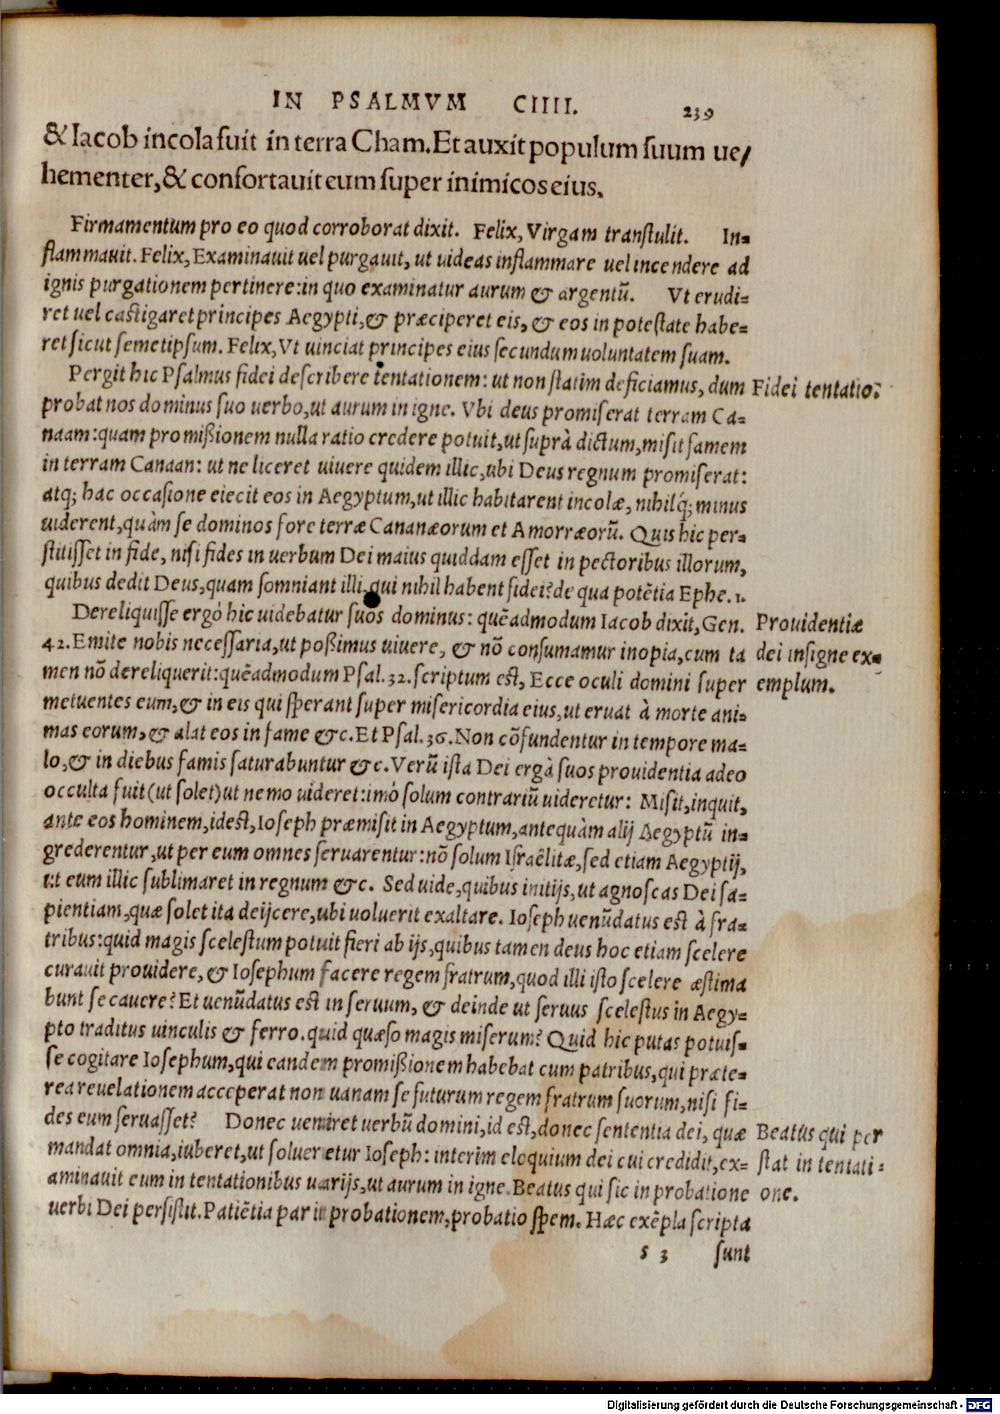 IN PSALMVM CIIII. 239
& Iacob incola fuit in terra Cham. Et auxit populum suum ue/
hementer, & confortauit eum super inimicos eius.
Firmamentum pro eo quod corroborat dixit. Felix, Virgam transtulit. In=
flammauit. Felix, Examinauit uel purgauit, ut uideas inflammare uel incendere ad
ignis purgationem pertinere: in quo examinatur aurum & argentũ. Vt erudi=
ret uel castigaret principes Aegypti, & præciperet eis, & eos in potestate habe=
ret sicut semetipsum. Felix, Vt uinciat principes eius secundum uoluntatem suam.
Pergit hic Psalmus fidei describere tentationem: ut non statim deficiamus, dum
Fidei tentatio.
probat nos dominus suo uerbo, ut aurum in igne. Vbi deus promiserat terram Ca=
naam: quam promißionem nulla ratio credere potuit, ut suprà dictum, misit famem
in terram Canaan: ut ne liceret uiuere quidem illic, ubi Deus regnum promiserat:
atq; hac occasione eiecit eos in Aegyptum, ut illic habitarent incolæ, nihilq́; minus
uiderent, quàm se dominos fore terræ Cananæorum et Amorræorũ. Quis hic per=
stitisset in fide, nisi fides in uerbum Dei maius quiddam esset in pectoribus illorum,
quibus dedit Deus, quam somniant illi, qui nihil habent fidei? de qua potẽtia Ephe. 1.
Dereliquisse ergó hic uidebatur suos dominus: quẽadmodum Iacob dixit, Gen.
Prouidentiæ
42. Emite nobis necessaria, ut poßimus uiuere, & nõ consumamur inopia, cum ta
dei insigne ex=
men nõ dereliquerit: quẽadmodum Psal. 32. scriptum est, Ecce oculi domini super
emplum.
metuentes eum, & in eis qui sperant super misericordia eius, ut eruat à morte ani=
mas eorum, & alat eos in fame &c. Et Psal. 36. Non cõfundentur in tempore ma=
lo, & in diebus famis saturabuntur &c. Verũ ista Dei ergà suos prouidentia adeo
occulta fuit (ut solet) ut nemo uideret: imó solum contrariũ uideretur: Misit, inquit,
ante eos hominem, idest, Ioseph præmisit in Aegyptum, antequàm alij Aegyptũ in=
grederentur, ut per eum omnes seruarentur: nõ solum Israëlitæ, sed etiam Aegyptij,
ut eum illic sublimaret in regnum &c. Sed uide, quibus initijs, ut agnoscas Dei sa=
pientiam, quæ solet ita deijcere, ubi uoluerit exaltare. Ioseph uenũdatus est à fra=
tribus: quid magis scelestum potuit fieri ab ijs, quibus tamen deus hoc etiam scelere
curauit prouidere, & Iosephum facere regem fratrum, quod illi isto scelere æstima
bunt se cauere? Et uenũdatus est in seruum, & deinde ut seruus scelestus in Aegy=
pto traditus uinculis & ferro. quid quæso magis miserum? Quid hic putas potuis=
se cogitare Iosephum, qui eandem promißionem habebat cum patribus, qui præte=
rea reuelationem acceperat non uanam se futurum regem fratrum suorum, nisi fi=
des eum seruasset? Donec ueniret uerbũ domini, id est, donec sententia dei, quæ
Beatus qui per
mandat omnia, iuberet, ut solueretur Ioseph: interim eloquium dei cui credidit, ex=
stat in tentati=
aminauit eum in tentationibus uarijs, ut aurum in igne. Beatus qui sic in probatione
one.
uerbi Dei persistit. Patiẽtia parit probationem, probatio spem. Hæc exẽpla scripta
s 3 sunt
Digitalisierung gefördert durch die Deutsche Forschungsgemeinschaft - DFG